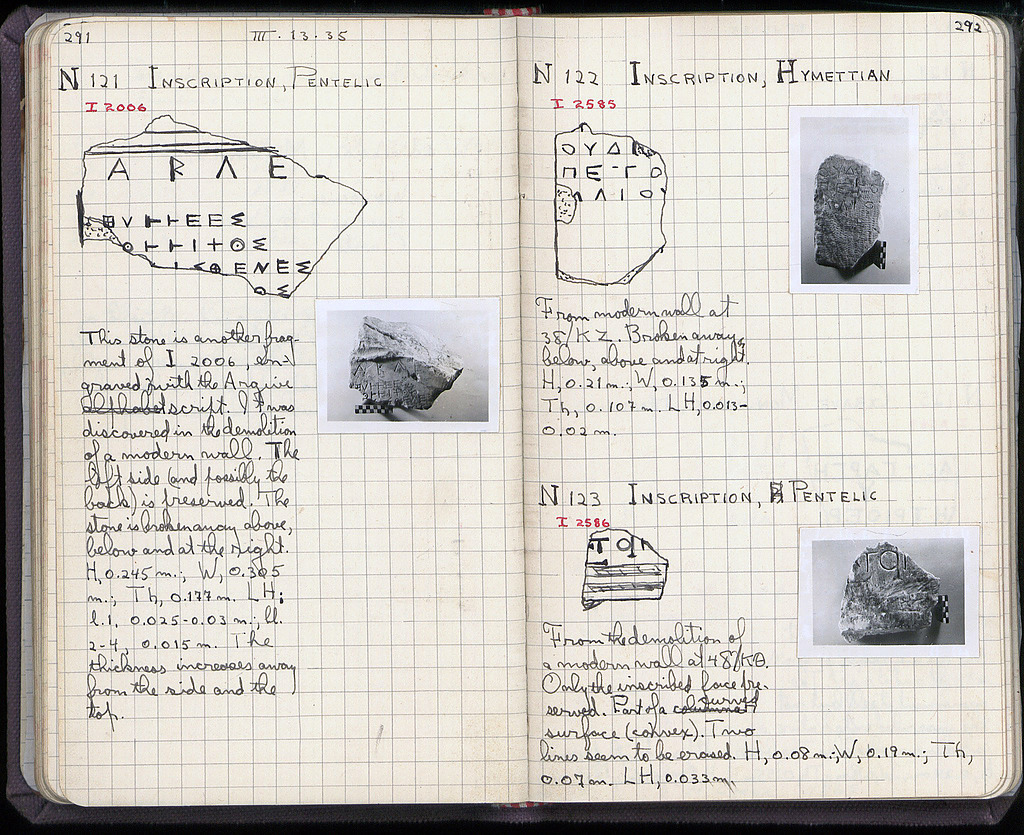 291
III · 13 · 35
N 121 INSCRIPTION, PENTELIC
I 2006
Α Ε
This stone is another frag-
ment of I 2006, en-
graved with the Argive
alphabet script. It was
discovered in the demolition
of a modern wall. The
left side (and possibly the
back) is preserved. The
stone is broken away above,
below and at the right.
H, 0.245 m.; W, 0.305
m.; Th, 0.177 m. LH;
l.1, 0.025-0.03 m., ll.
2-4, 0.015 m. The
thickness increases away
from the side and the
top.
292
N 122 INSCRIPTION, HYMETTIAN
I 2585
Ο Υ Δ
Π Ε Τ Ο
Λ Ι Ο
From modern wall at
38/ΚΖ. Broken away
below, above and at right.
H, 0.21 m.; W, 0.135 m.;
Th, 0.107 m. LH, 0.013-
0.02 m.
N 123 INSCRIPTION, PENTELIC
I 2586
From the demolition of
a modern wall at 48/ΚΘ.
Only the inscribed face pre-
served. Part of a curved
surface (convex). Two
lines seem to be erased. H, 0.08 m.; W, 0.19 m.; Th,
0.07 m. LH, 0.033 m.